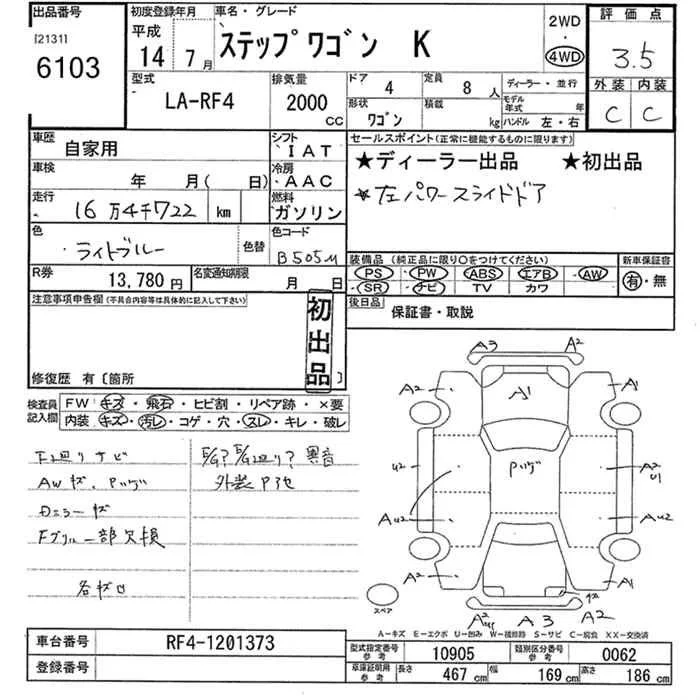 出品番号
[2131]
6103
初度登録年月
平成
14 7月
車名・グレード
ステップワゴン K
2WD
・
4WD
評価点
3.5
外装 内装
C C
型式
LA-RF4
排気量
2000
CC
ドア
4
定員
8 人
形状
ワゴン
積載
kg
ディーラー・並行
モデル年式 年
ハンドル 左・右
車歴
自家用
シフト
IAT
車検
年 月( 日)
冷房
AAC
走行
16万4千722 km
燃料
ガソリン
色
ライトブルー
色替
色コード
B505M
R券
13,780円
名変通知期限
月 日
セールスポイント(正常に機能するものに限ります)
★ディーラー出品 ★初出品
★左パワースライドドア
装備品(純正品に限り○をつけてください)
PS・PW・ABS・エアB・AW
SR・ナビ・TV・カワ
新車保証書
有・無
後日品
保証書・取説
注意事項申告欄(不具合内容等は具体的に記入して下さい)
初出品
修復歴 有〔箇所 〕
検査員記入欄
FW キズ・飛石・ヒビ割・リペア跡・×要
内装 キズ・汚レ・コゲ・穴・スレ・キレ・破レ
F廻りサビ
AWキズ、
Dミラーキズ
Fグリル一部欠損
各キズ凹
異音
外装
A3 A2
A2 A1 A1
U2 A2
U1
AU2 AU2
A2 A1
A2 A3 A2
スペア
A-キズ E-エクボ U-凹み W-補修跡 S-サビ C-腐食 XX-交換済
車台番号
RF4-1201373
登録番号
型式指定番号
参考
10905
類別区分番号
参考
0062
車庫証明用
参考
長さ 467 cm 幅 169 cm 高さ 186 cm